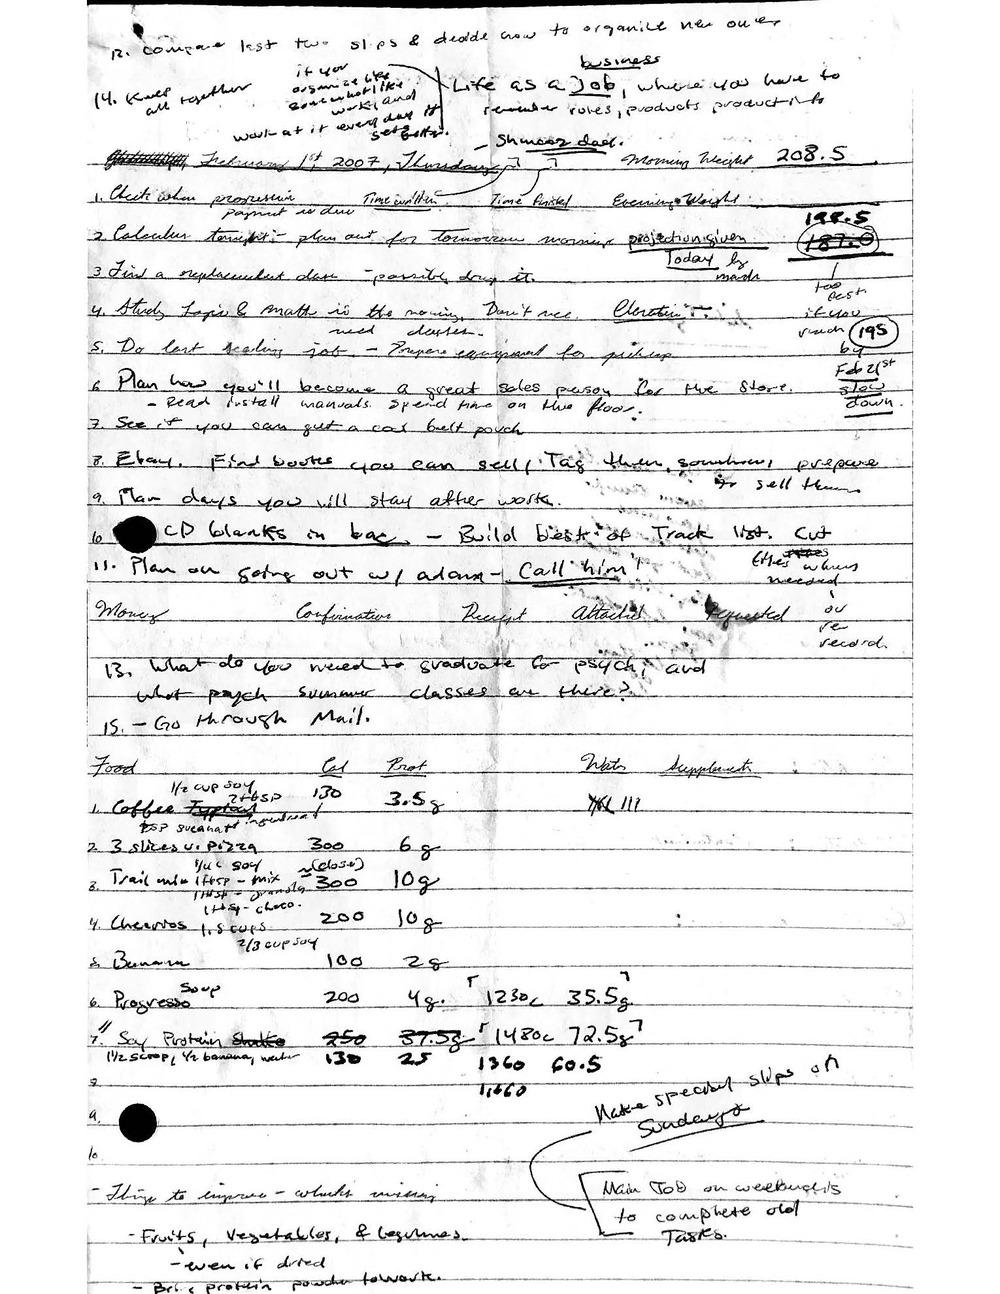 12. Compare last two slips & decide how to organize new one.
14. Keep all together
if you
organize like
somewhat like
work, and
work at it every day it
gets better.
business
Life as a Job, where you have to
remember roles, products product info
February 1st 2007, Thursday
Morning Weight 208.5
1. Check when progressive
payment is due
Time written
Time finished
Evening Weight
198.5
187.0
2. Calculus tonight - plan out for tomorrow morning
projection given
Today by
math
too
fast
if you
reach 195
by
Feb 21st
slow
down.
3. Find a replacement class - possibly drop it.
4. Study Logic & math in the morning. Don't need classes.
5. Do last sealing job. - Prepare equipment for pickup
6. Plan how you'll become a great sales person for the store.
- Read install manuals. Spend time on the floor.
7. See if you can get a car belt pouch
8. Ebay. Find books you can sell, Tag them, somehow, prepare
to sell them
9. Plan days you will stay after work.
10 CD blanks in bag. - Build best of Track list. Cut
when
needed
or
re
record.
11. Plan on going out w/ adam - Call him!
Money Confirmation Receipt Attached Requested
13. What do you need to graduate for psych, and
what psych summer classes are there?
15. - Go through Mail.
Food Cal Prot Water Supplements
1/2 cup soy
2 tbsp
1. Coffee 130 3.5g III
2. 3 slices v. Pizza 300 6g
1/4 c soy
3. Trail mix 1 tbsp - mix ~ (close) 300 10g
1 tbsp - granola
1 tbsp - choco.
4. Cheerios 1.5 cups 200 10g
2/3 cup soy
5. Banana 100 2g
6. Progresso Soup 200 4g. 1230c 35.5g
7. Soy Protein Shake 250 37.5g 1480c 72.5g
1 1/2 scoop, 1/2 banana, water 130 25 1360 60.5
1,660
8
9.
10
Make special slips on
Sundays
Main Job on weekends
to complete old
Tasks.
- Things to improve - what's missing
- Fruits, Vegetables, & Legumes.
- even if dried
- Bring protein powder to work.